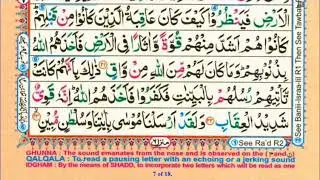 الْاَرْضِ فَيَنْظُرُوْا كَيْفَ كَانَ عَاقِبَةُ الَّذِيْنَ كَانُوْا مِنْ قَبْلِهِمْ
كَانُوْا هُمْ اَشَدَّ مِنْهُمْ قُوَّةً وَّاٰثَارًا فِي الْاَرْضِ فَاَخَذَهُمُ اللّٰهُ
بِذُنُوْبِهِمْ وَمَا كَانَ لَهُمْ مِّنَ اللّٰهِ مِنْ وَّاقٍ ٢١ ذٰلِكَ بِاَنَّهُمْ كَانَتْ
تَّاْتِيْهِمْ رُسُلُهُمْ بِالْبَيِّنٰتِ فَكَفَرُوْا فَاَخَذَهُمُ اللّٰهُ اِنَّهٗ قَوِيٌّ
شَدِيْدُ الْعِقَابِ ٢٢ وَلَقَدْ اَرْسَلْنَا مُوْسٰى بِاٰيٰتِنَا وَسُلْطٰنٍ مُّبِيْنٍ
See Banii-Israa-iil R1 Then See Tawbah
See Ra'd R2
GHUNNA : The sound emanates from the nose and is observed on the
QALQALA : To read a pausing letter with an echoing or a jerking sound
IDGHAM : By the means of SHADD, to incorporate two letters which will be read as
7 of 18